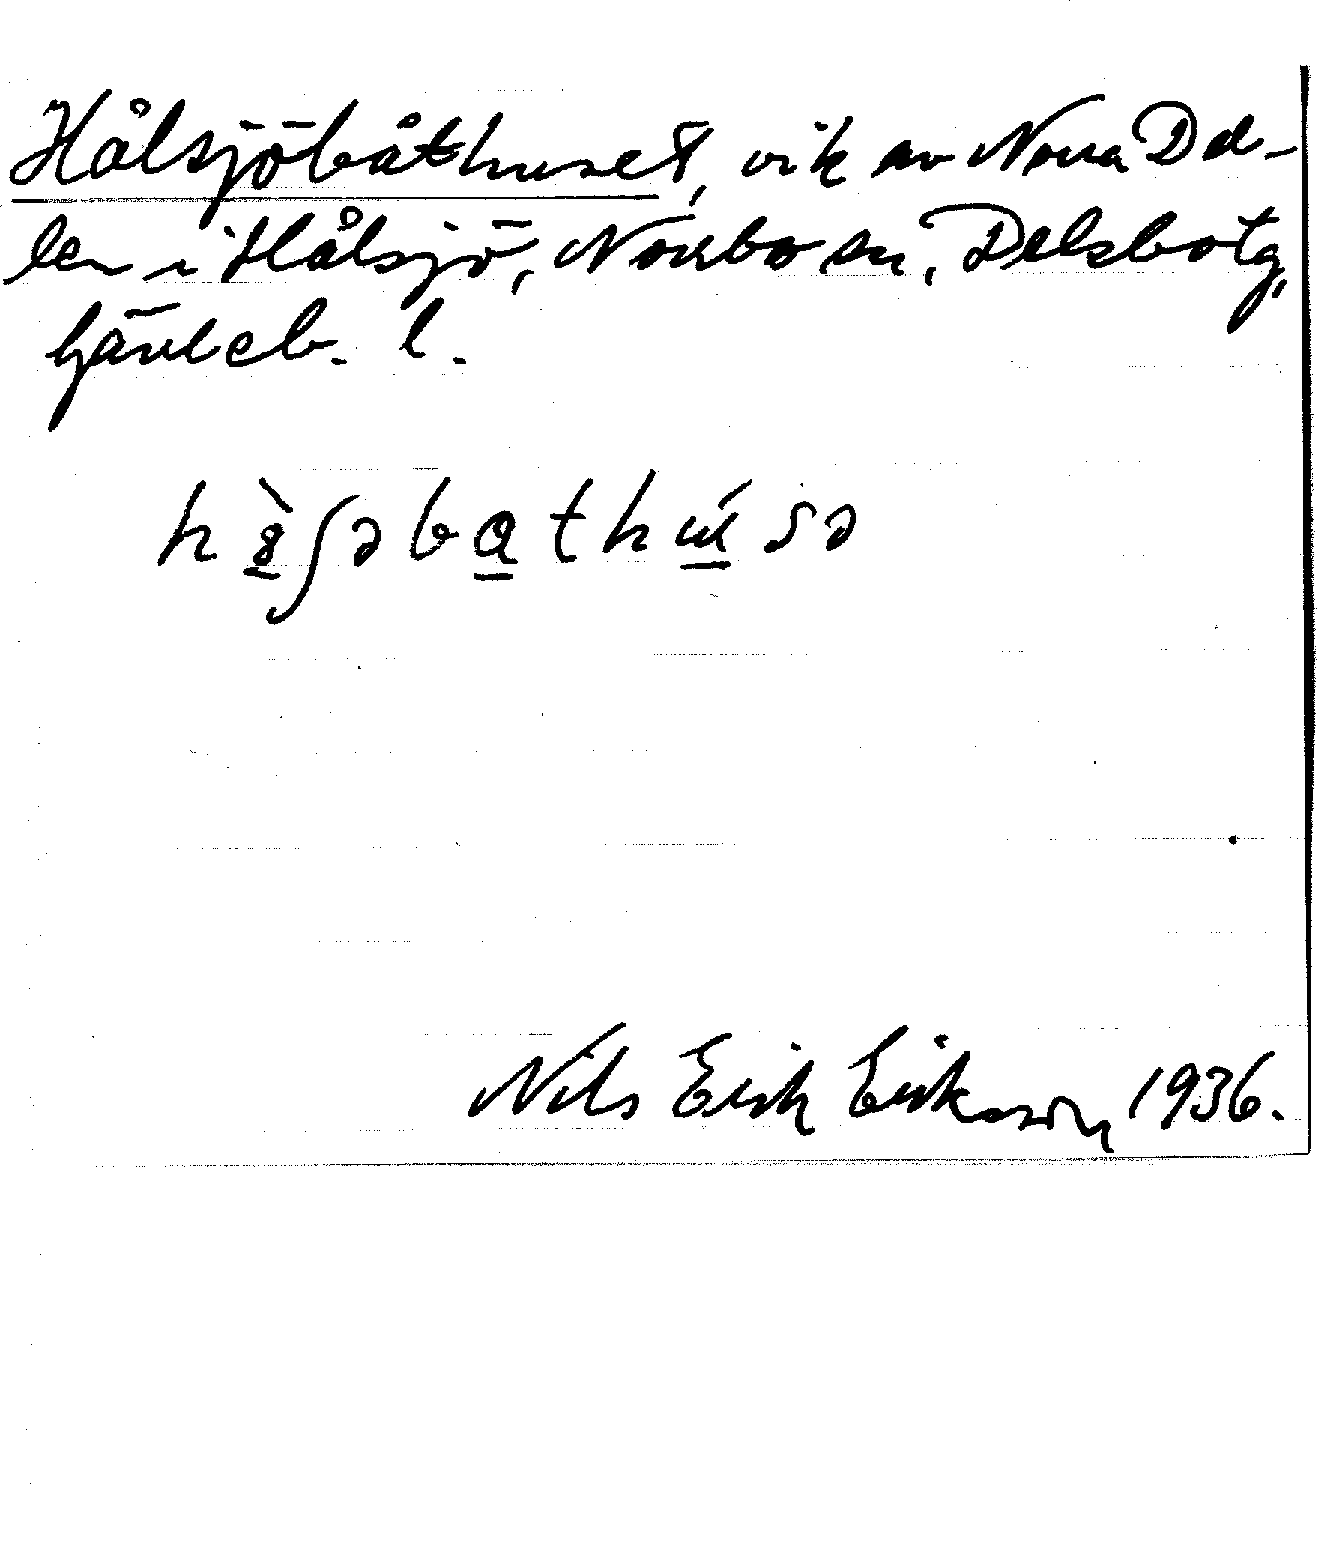 Hålsjöbåthuset, vik av Norra Del-
len i Hålsjö, Norrbo sn, Delsbo tg,
Gävleb. l.
Nils Erik Eriksson 1936.